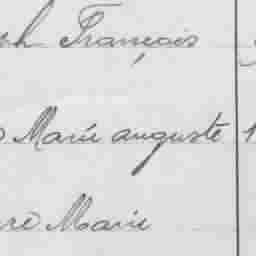 François
Marie auguste
Marie